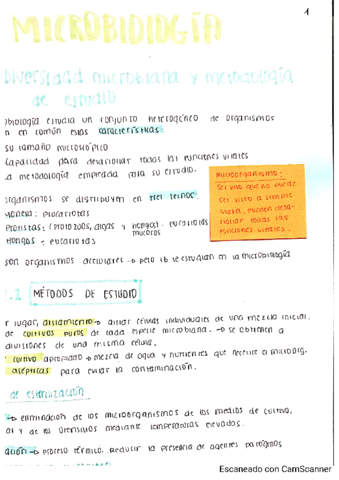 1
MICROBIOLOGÍA
diversidad microbiana y metodología
de estudio
obiología estudia un conjunto heterogéneo de organismos
n en común estas características:
su tamaño microscópico
capacidad para desarrollar todas las funciones vitales
a metodología empleada para su estudio.
Microorganismo:
Ser vivo que no puede
ser visto a simple
vista, pueden desa-
rrollar todas las
funciones vitales.
organismos se distribuyen en tres reinos:
moneras: procariotas
Protistas: (protozoos, algas y hongos) eucariotas
mucosos
Hongos: eucariotas
son organismos acelulares → pero tb se estudian en la microbiología
MÉTODOS DE ESTUDIO
r lugar, aislamiento → aislar células individuales de una mezcla inicial.
de cultivos puros de cada especie microbiana. → se obtienen a
divisiones de una misma célula.
cultivo apropiado → mezcla de agua y nutrientes que necesite el microorg.
asépticas para evitar la contaminación.
de esterilización
→ eliminación de los microorganismos de los medios de cultivo,
al y de los utensilios mediante temperaturas elevadas.
ación → proceso térmico. Reducir la presencia de agentes patógenos
Escaneado con CamScanner